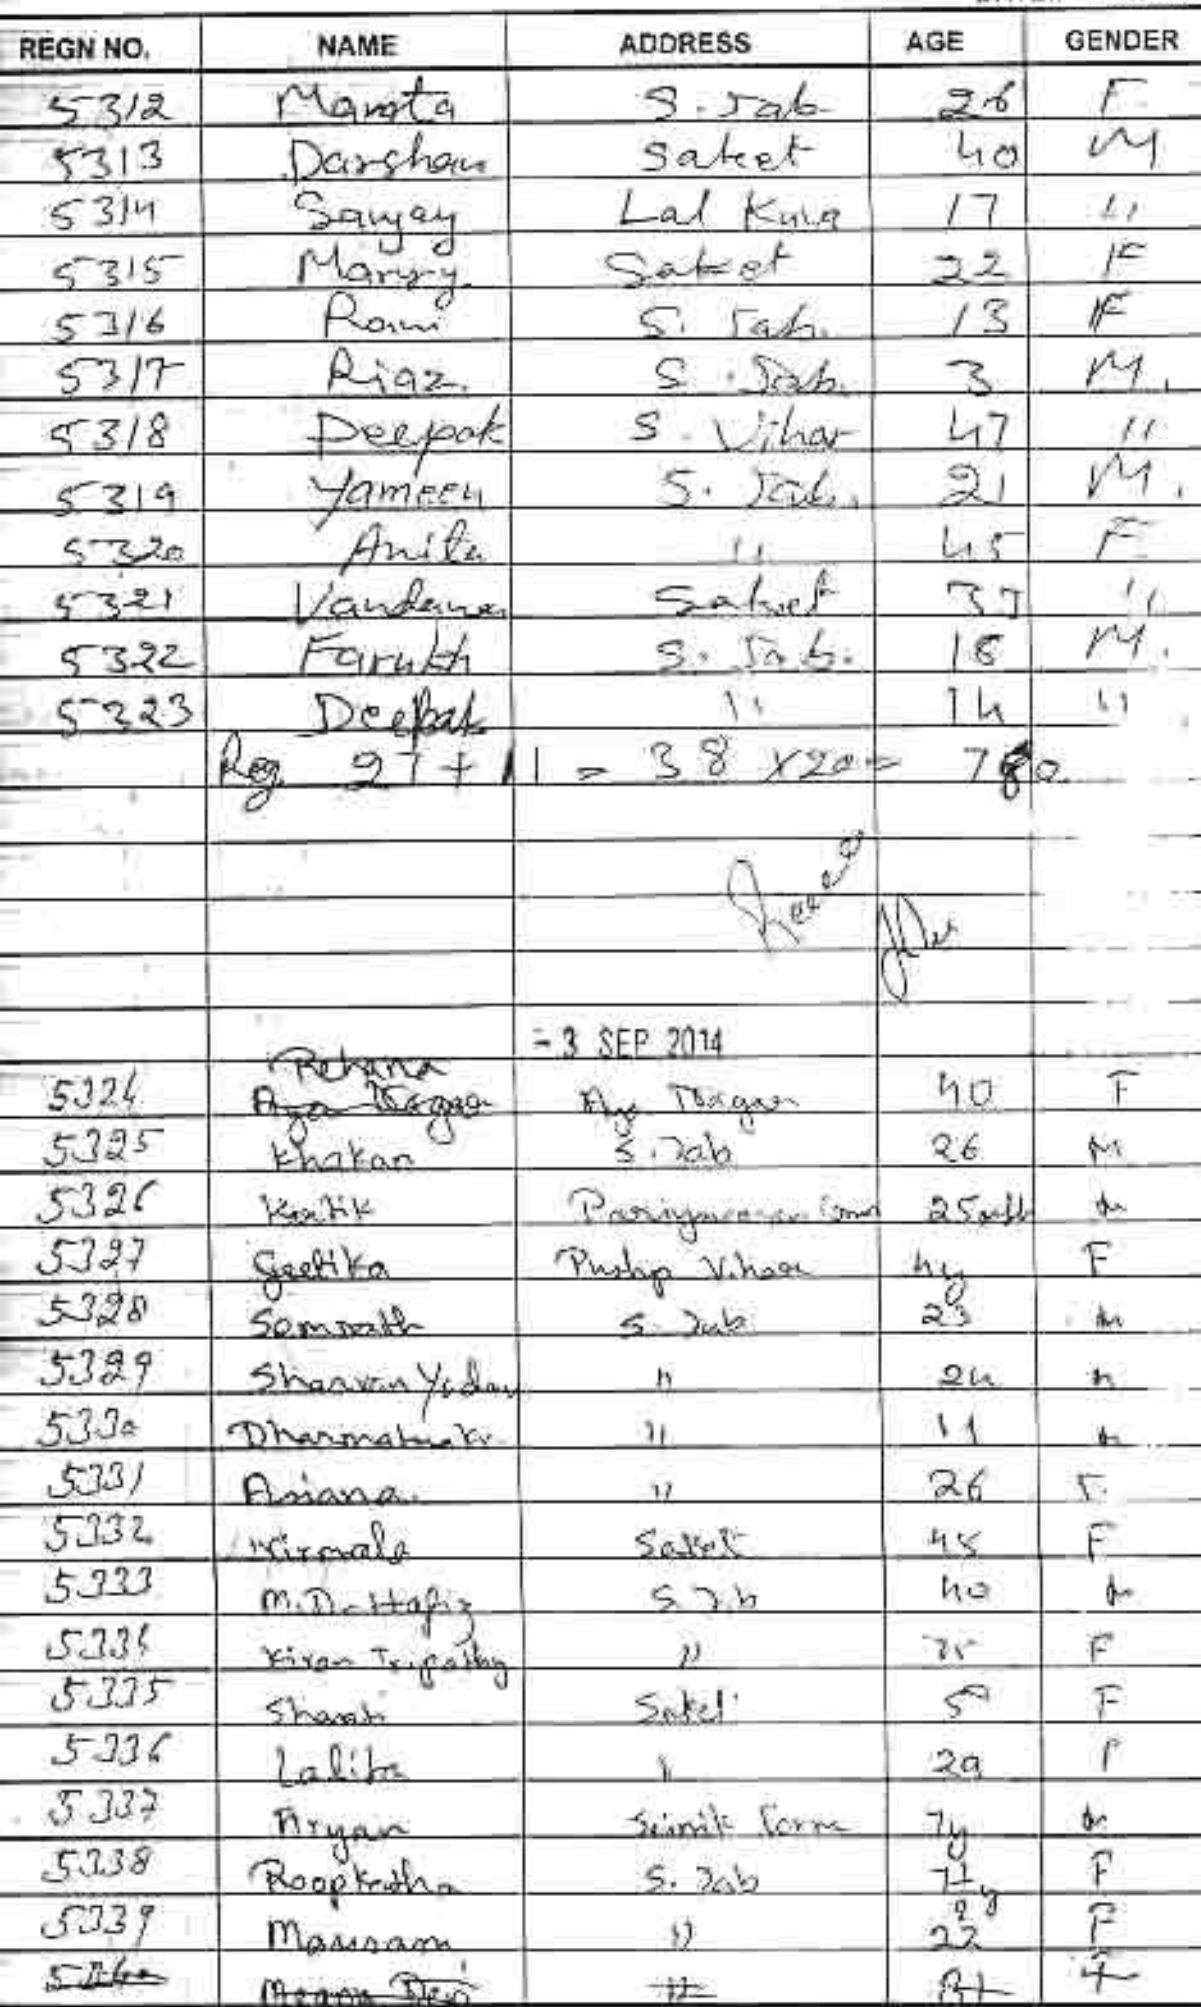 REGN NO. NAME ADDRESS AGE GENDER
5312 Mamta S. Jab 26 F
5313 Darshan Saket 40 M
5314 Sanjay Lal Kuia 17 "
5315 Saket 22 F
5316 Rani S. Jab. 13 F
5317 Riaz. S. Jab. 3 M.
5318 Deepak S. Vihar 47 "
5319 Yameen S. Jab. 21 M.
5320 Anita " 45 F
5321 Vandana Saket "
5322 Farukh S. Jab. 18 M.
5323 Deepak " 14 "
Reg 27 + 11 = 38 x 20 =
- 3 SEP 2014
Rehana
5324 Aya Nagar Aya Nagar 40 F
5325 Khakan S. Jab 26 M
5326 Kartik 25 M
5327 Geetika Pushp Vihar 4y F
5328 Somnath S. Jab 23 M
5329 Sharvan Yadav " 24 M
5330 " 11 M
5331 " 26 F
5332 Nirmala Saket 45 F
5333 M.D. Hafiz S. Jab 40 M
5334 Kiran Tripathy " F
5335 Saket 5 F
5336 Lalita " 29 F
5337 Aryan Sainik Farm 7y M
5338 S. Jab F
5339 Mausam " 22 F
Meena Devi " F